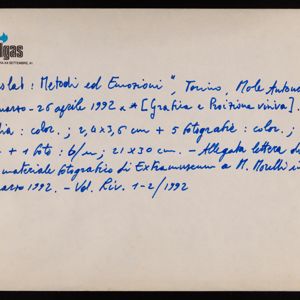 lgas
VIA XX SETTEMBRE, 41
oslab : Metodi ed Emozioni", Torino, Mole Anton
marzo - 26 aprile 1992 [Grafica e Proizione visiva].
dia : color. ; 2,4x3,6 cm + 5 fotografie : color. ;
+ 1 foto : b/n ; 21x30 cm. - Allegata lettera di
materiale fotografico di Extramuseum a M. Morelli in
arzo 1992. - Vol. Riv. 1-2/1992